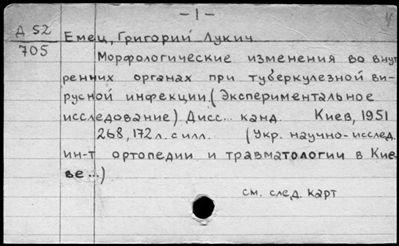 -1-
Д 52
705
Емец, Григорий Лукич
Морфологические изменения во внут
ренних органах при туберкулезной ви-
русной инфекции. (Экспериментальное
исследование). Дисс... канд. Киев, 1951
268, 172 л. с илл. (Укр. научно-исслед.
ин-т ортопедии и травматологии в Кие-
ве...)
см. след. карт